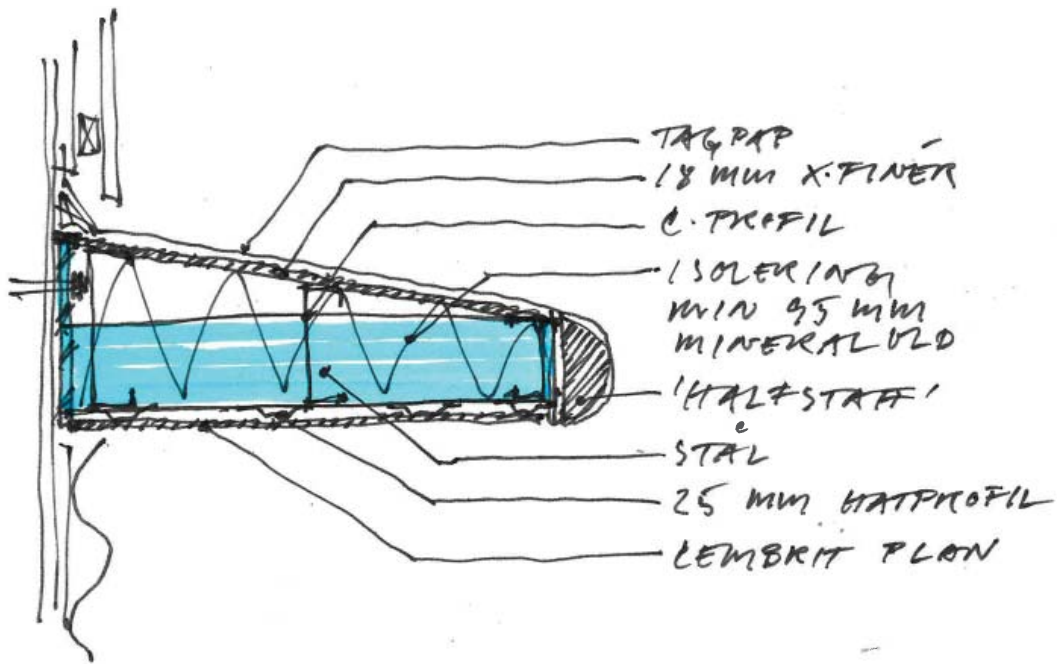 TAGPAP
18 MM X-FINÉR
C-PROFIL
ISOLERING
MIN 95 MM
MINERALULD
'HALFSTAFF'
STÅL
25 MM HATPROFIL
CEMBRIT PLAN